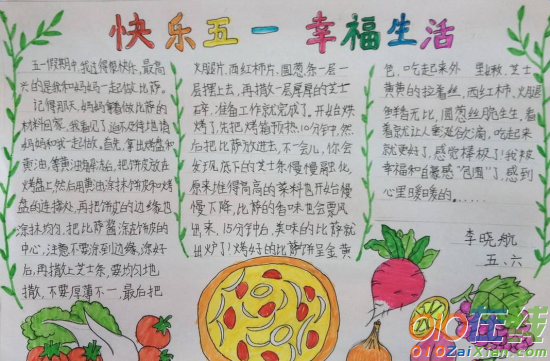 快乐五一 幸福生活
五一假期中,我过得很快乐,最高
兴的是我和妈妈一起做比萨。
记得那天,妈妈拿着做比萨的
材料回家,我看见了,迫不及待地猜
妈妈和我一起做。首先,拿出烤盘和
黄油,等黄油解冻后,把饼皮放在
烤盘上,然后用黄油涂抹饼皮和烤
盘的连接处,再把饼皮的边缘也
涂抹均匀,把比萨酱涂在饼皮的
中心,注意不要涂到边缘,涂好
后,再撒上芝士条,要均匀地
撒,不要厚薄不一,最后把
火腿片、西红柿片、圆葱条一层一
层摆上去,再撒一层厚厚的芝士
碎,准备工作就完成了。开始烘
烤了,先把烤箱预热10分钟,然
后把比萨放进去,不一会儿,你会
发现底下的芝士条慢慢融化,
原来堆得高高的菜料也开始慢
慢下降,比萨的香味也会飘
出来,15分钟后,美味的比萨就
出炉了!烤好的比萨饼呈金黄
色,吃起来外 里软,芝士
黄黄的拉着丝,西红柿、火腿
鲜香无比,圆葱丝脆生生,看
着就让人垂涎欲滴,吃起来
就更好了,感觉棒极了!我被
幸福和自豪感“包围”了,感到
心里暖暖的……
李晓航
五.六
010在线
010ZaiXian.com